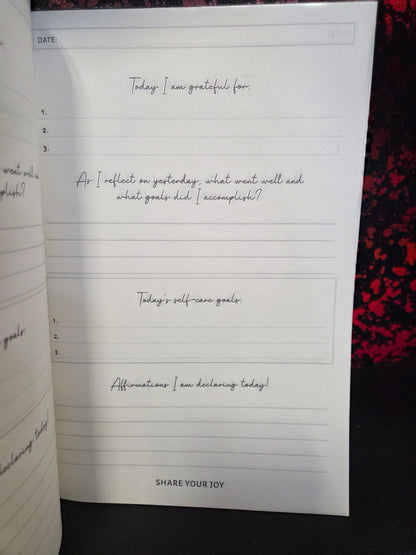 went well and
plish?
goals.
declaring today!
DATE:
Today I am grateful for:
1.
2.
3.
As I reflect on yesterday, what went well and
what goals did I accomplish?
Today's self-care goals:
1.
2.
3.
Affirmations I am declaring today!
SHARE YOUR JOY